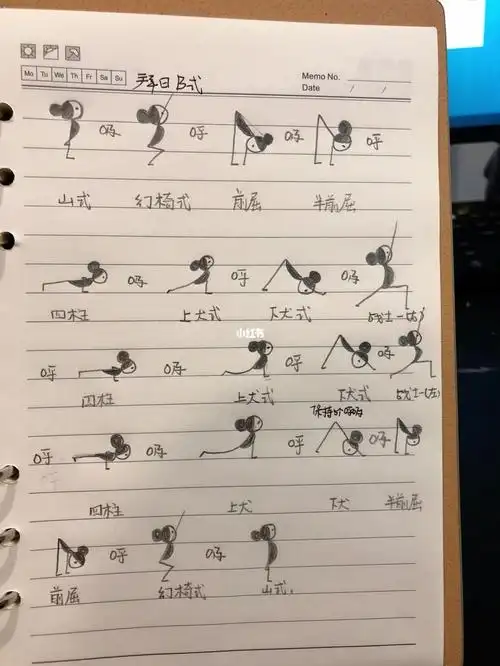 Mo Tu We Th Fr Sa Su
拜日B式
Memo No.
Date / /
吸 呼 吸 呼
山式 幻椅式 前屈 半前屈
吸 呼 吸
四柱 上犬式 下犬式 战士一(右)
小红书
呼 吸 呼 吸
四柱 上犬式 下犬式 战士一(左)
保持5个呼吸
呼 吸 呼 吸
四柱 上犬 下犬 半前屈
呼 吸
前屈 幻椅式 山式.